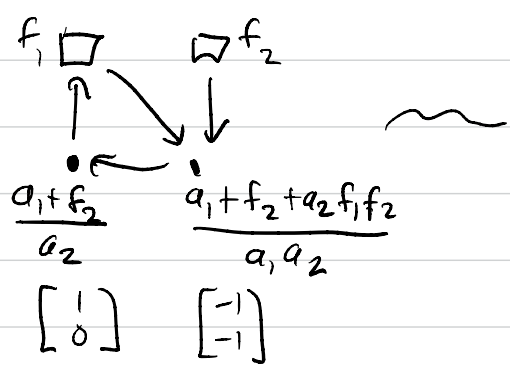 f₁ f₂
(a₁+f₂)/a₂ (a₁+f₂+a₂f₁f₂)/(a₁a₂)
[1 0] [-1 -1]